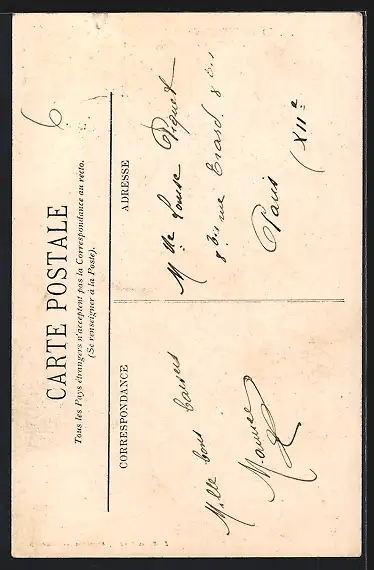 6
CARTE POSTALE
Tous les Pays étrangers n'acceptent pas la Correspondance au recto.
(Se renseigner à la Poste).
CORRESPONDANCE
Mille bons baisers
Maurice
ADRESSE
Mlle Louise Piquet
8 bis rue Erard. 8 bis
Paris
(XIIe